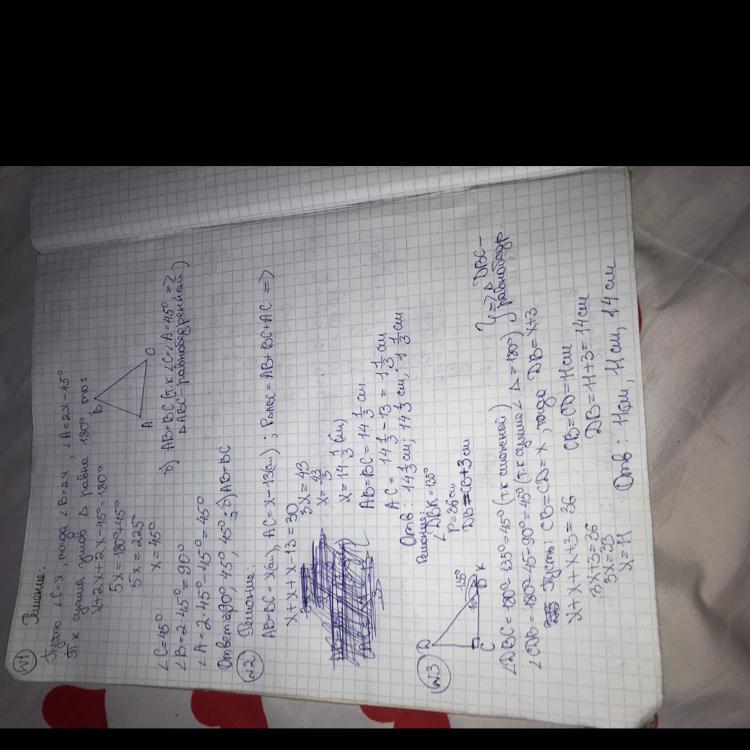 №1 Решение:
Пусть ∠C=x, тогда ∠B=2x, ∠A=2x-45°
Т.к сумма углов △ равна 180°, то:
x+2x+2x-45°=180°
5x=180°+45°
5x=225°
x=45°
B
A
C
∠C=45°
∠B=2·45°=90°
∠A=2·45°-45°=45°
б) AB=BC (т.к ∠C=∠A=45°, =>
△ABC равнобедренный)
Ответ: а) 90°, 45°, 45°; б) AB=BC
№2 Решение:
AB=BC=x(см), AC=x-13(см); P△ABC=AB+BC+AC =>
x+x+x-13=30
3x=43
x=43/3
x=14 1/3 (см)
AB=BC=14 1/3 см
AC=14 1/3-13=1 1/3 см
Отв 14 1/3 см; 14 1/3 см; 1 1/3 см
№3
Решение:
∠DBK=135°
P=36см
DB=CB+3см
D
135°
B
K
C
∠DBC=180°-135°=45° (т.к смежной)
∠CDB=180°-45-90°=45° (т.к сумма ∠ △=180°)
} => △ DBC -
равнобедр
Пусть: CB=CD=x, тогда DB=x+3
x+x+x+3=36
3x+3=36
3x=33
x=11
CB=CD=11см
DB=11+3=14см
Отв: 11см, 11см, 14см